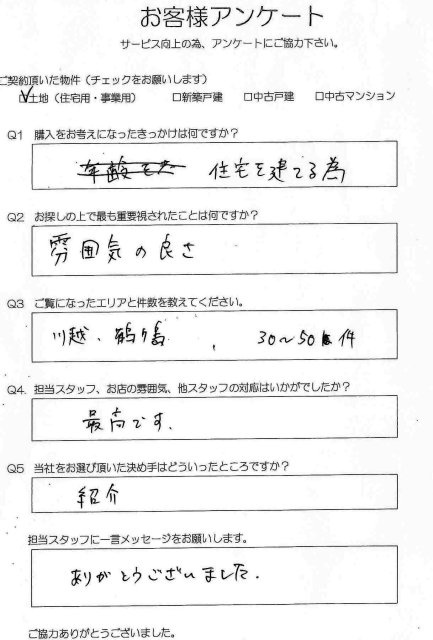 お客様アンケート
サービス向上の為、アンケートにご協力下さい。
ご契約頂いた物件（チェックをお願いします）
☑土地（住宅用・事業用） □新築戸建 □中古戸建 □中古マンション
Q1 購入をお考えになったきっかけは何ですか？
住宅を建てる為
Q2 お探しの上で最も重要視されたことは何ですか？
雰囲気の良さ
Q3 ご覧になったエリアと件数を教えてください。
川越、鶴ヶ島、 30～50件
Q4. 担当スタッフ、お店の雰囲気、他スタッフの対応はいかがでしたか？
最高です.
Q5 当社をお選び頂いた決め手はどういったところですか？
紹介
担当スタッフに一言メッセージをお願いします。
ありがとうございました.
ご協力ありがとうございました。